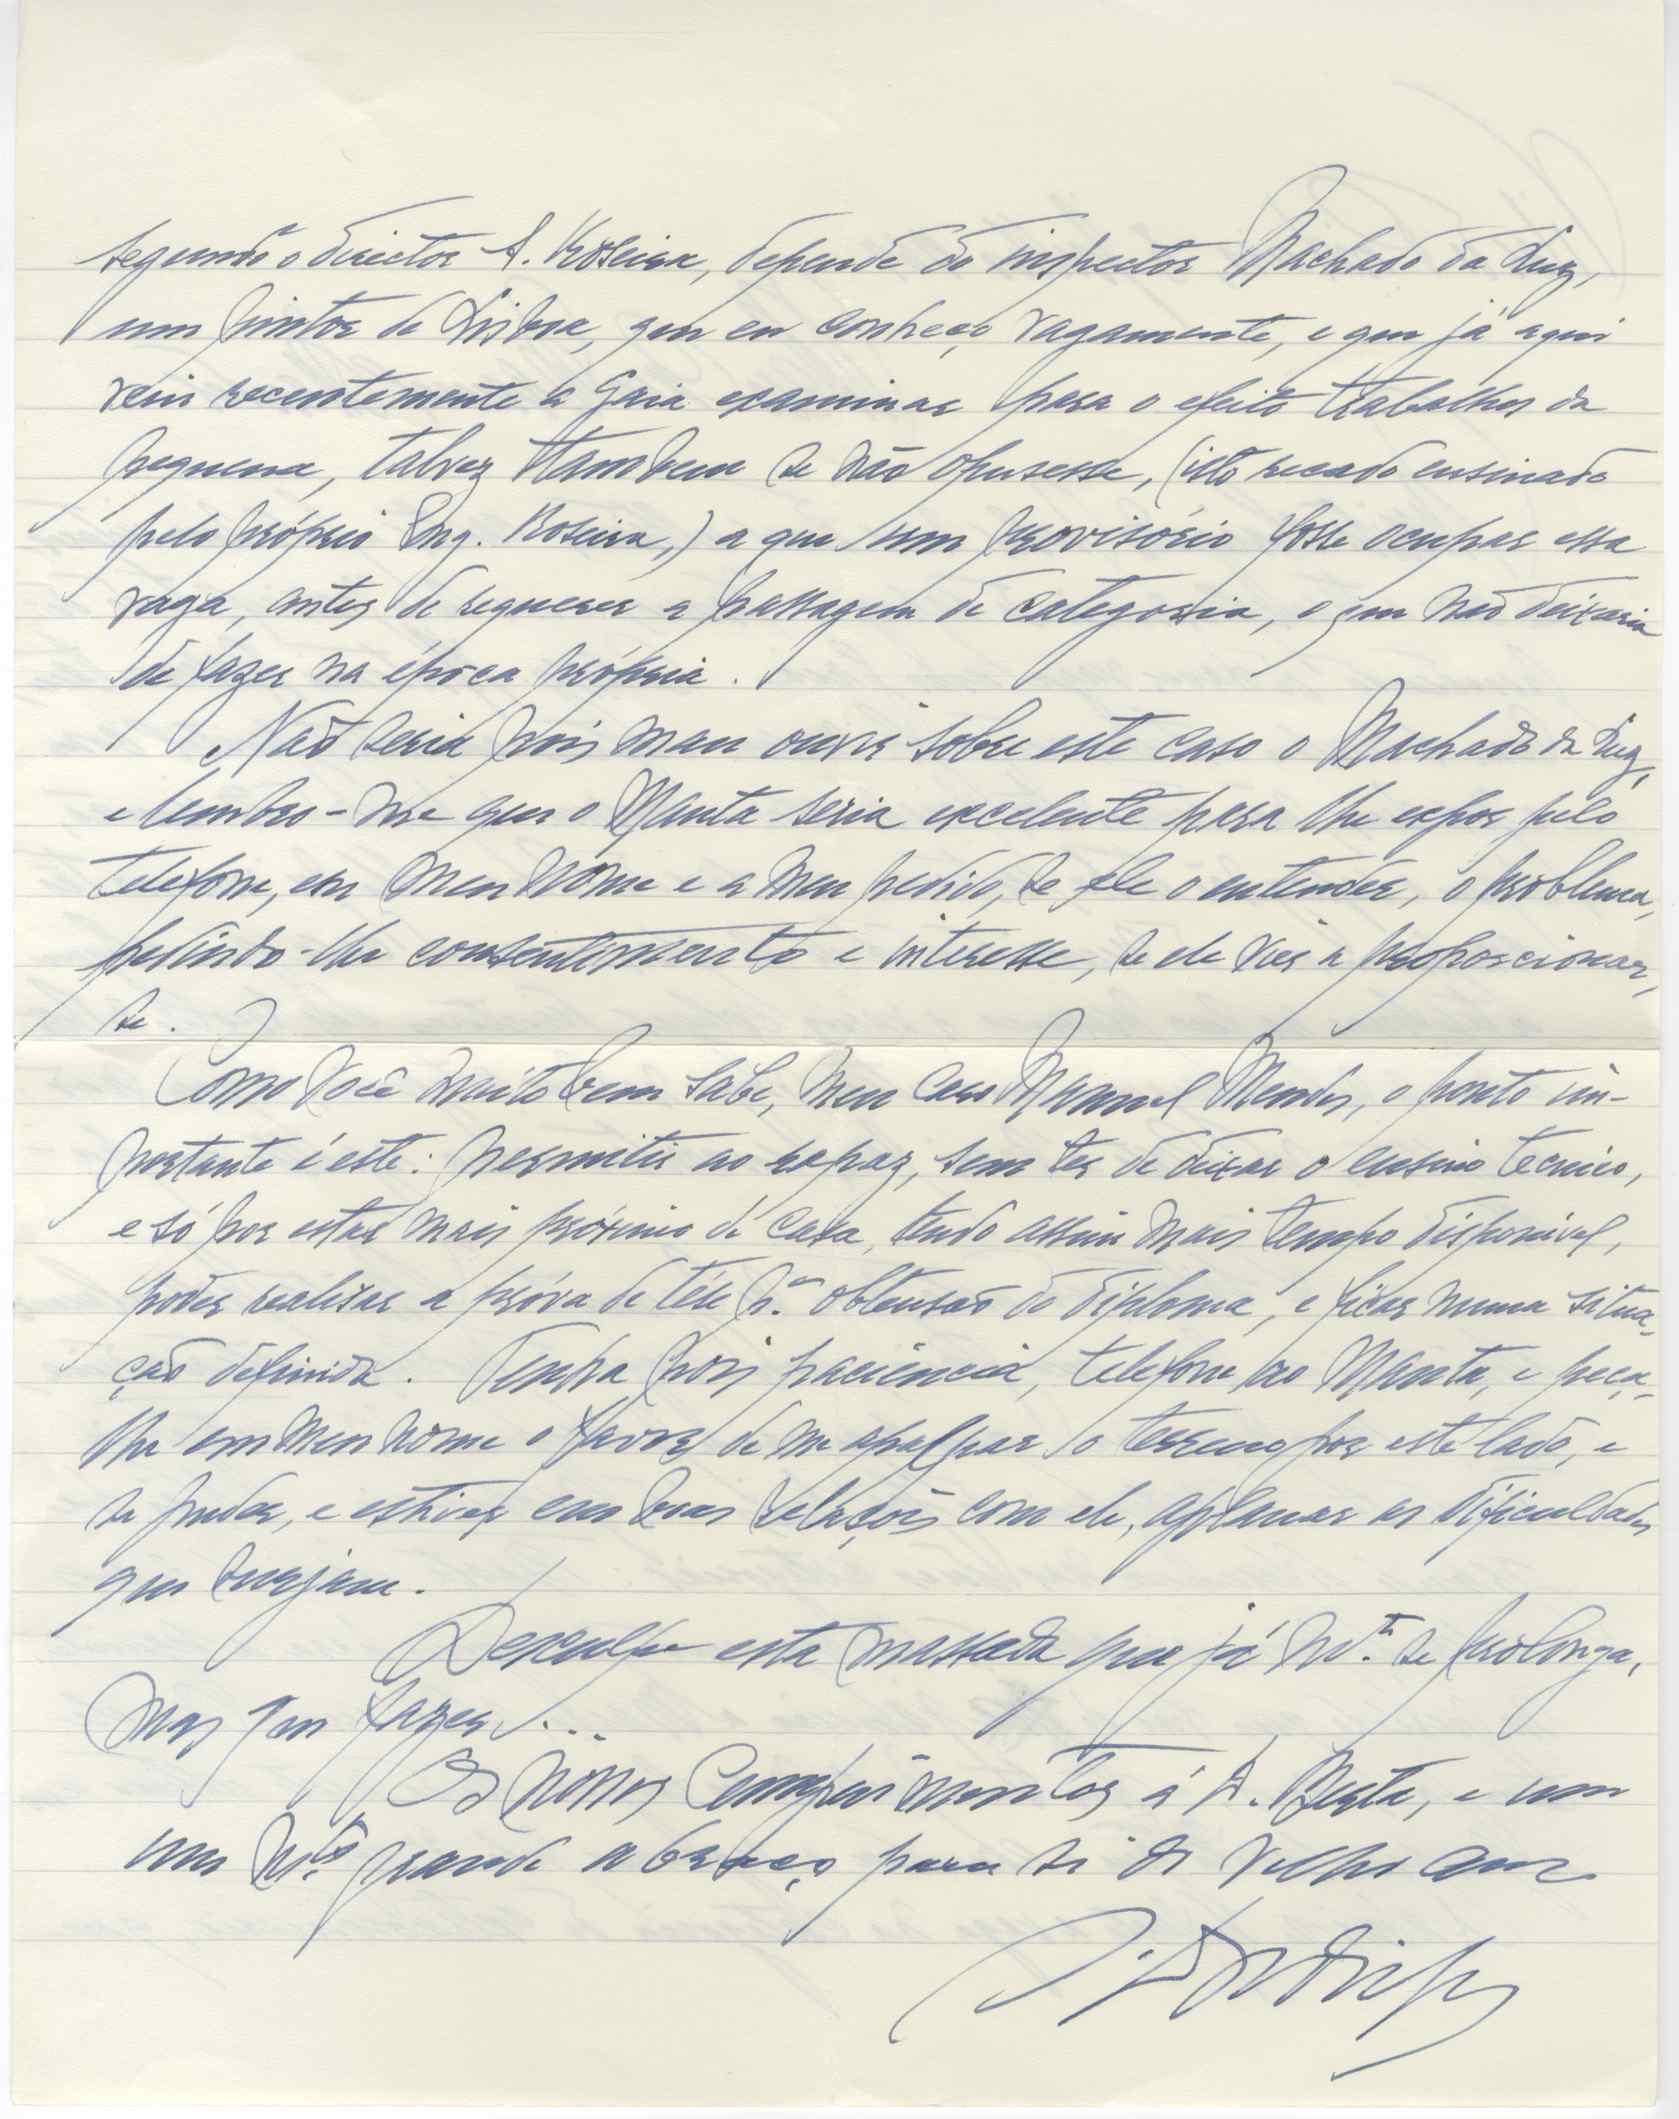 segundo o director A. Roseira, depende do inspector Machado da Luz,
um pintor de Lisboa, que eu conheço vagamente, e que já aqui
veio recentemente a Gaia examinar para o efeito trabalhos da
pequena, talvez tambem se não opusesse, (isto recado ensinado
pelo próprio Eng. Roseira,) a que um provisório fosse ocupar essa
vaga, antes de requerer a passagem de categoria, o que não deixaria
de fazer na época própria.
Não seria pois mau ouvir sobre este caso o Machado da Luz,
e lembro-me que o Manta seria excelente para lhe expor pelo
telefone, em meu nome e a meu pedido, se ele o entender, o problema,
pedindo-lhe consentimento e interesse, se ele vier a proporcionar,
se.
Como Você muito bem sabe, meu caro Manuel Mendes, o ponto im-
portante é este: permitir ao rapaz, sem ter de deixar o ensino tecnico,
e só por estar mais próximo de casa, tendo assim mais tempo disponivel,
poder realizar a próva de tése p.ª obtensão do diploma, e ficar numa situa-
ção definida. Tenha pois paciência, telefone ao Manta, e peça-
lhe em meu nome o favor de me apalpar o terreno por este lado, e
se puder, e estiver em boas relações com ele, aplanar as dificuldades
que surjam.
Desculpe esta massada que já m.to se prolonga,
mas que fazer....
Os nossos Cumprimentos á D. Berta, e um
um m.to grande abraço para si do velho am